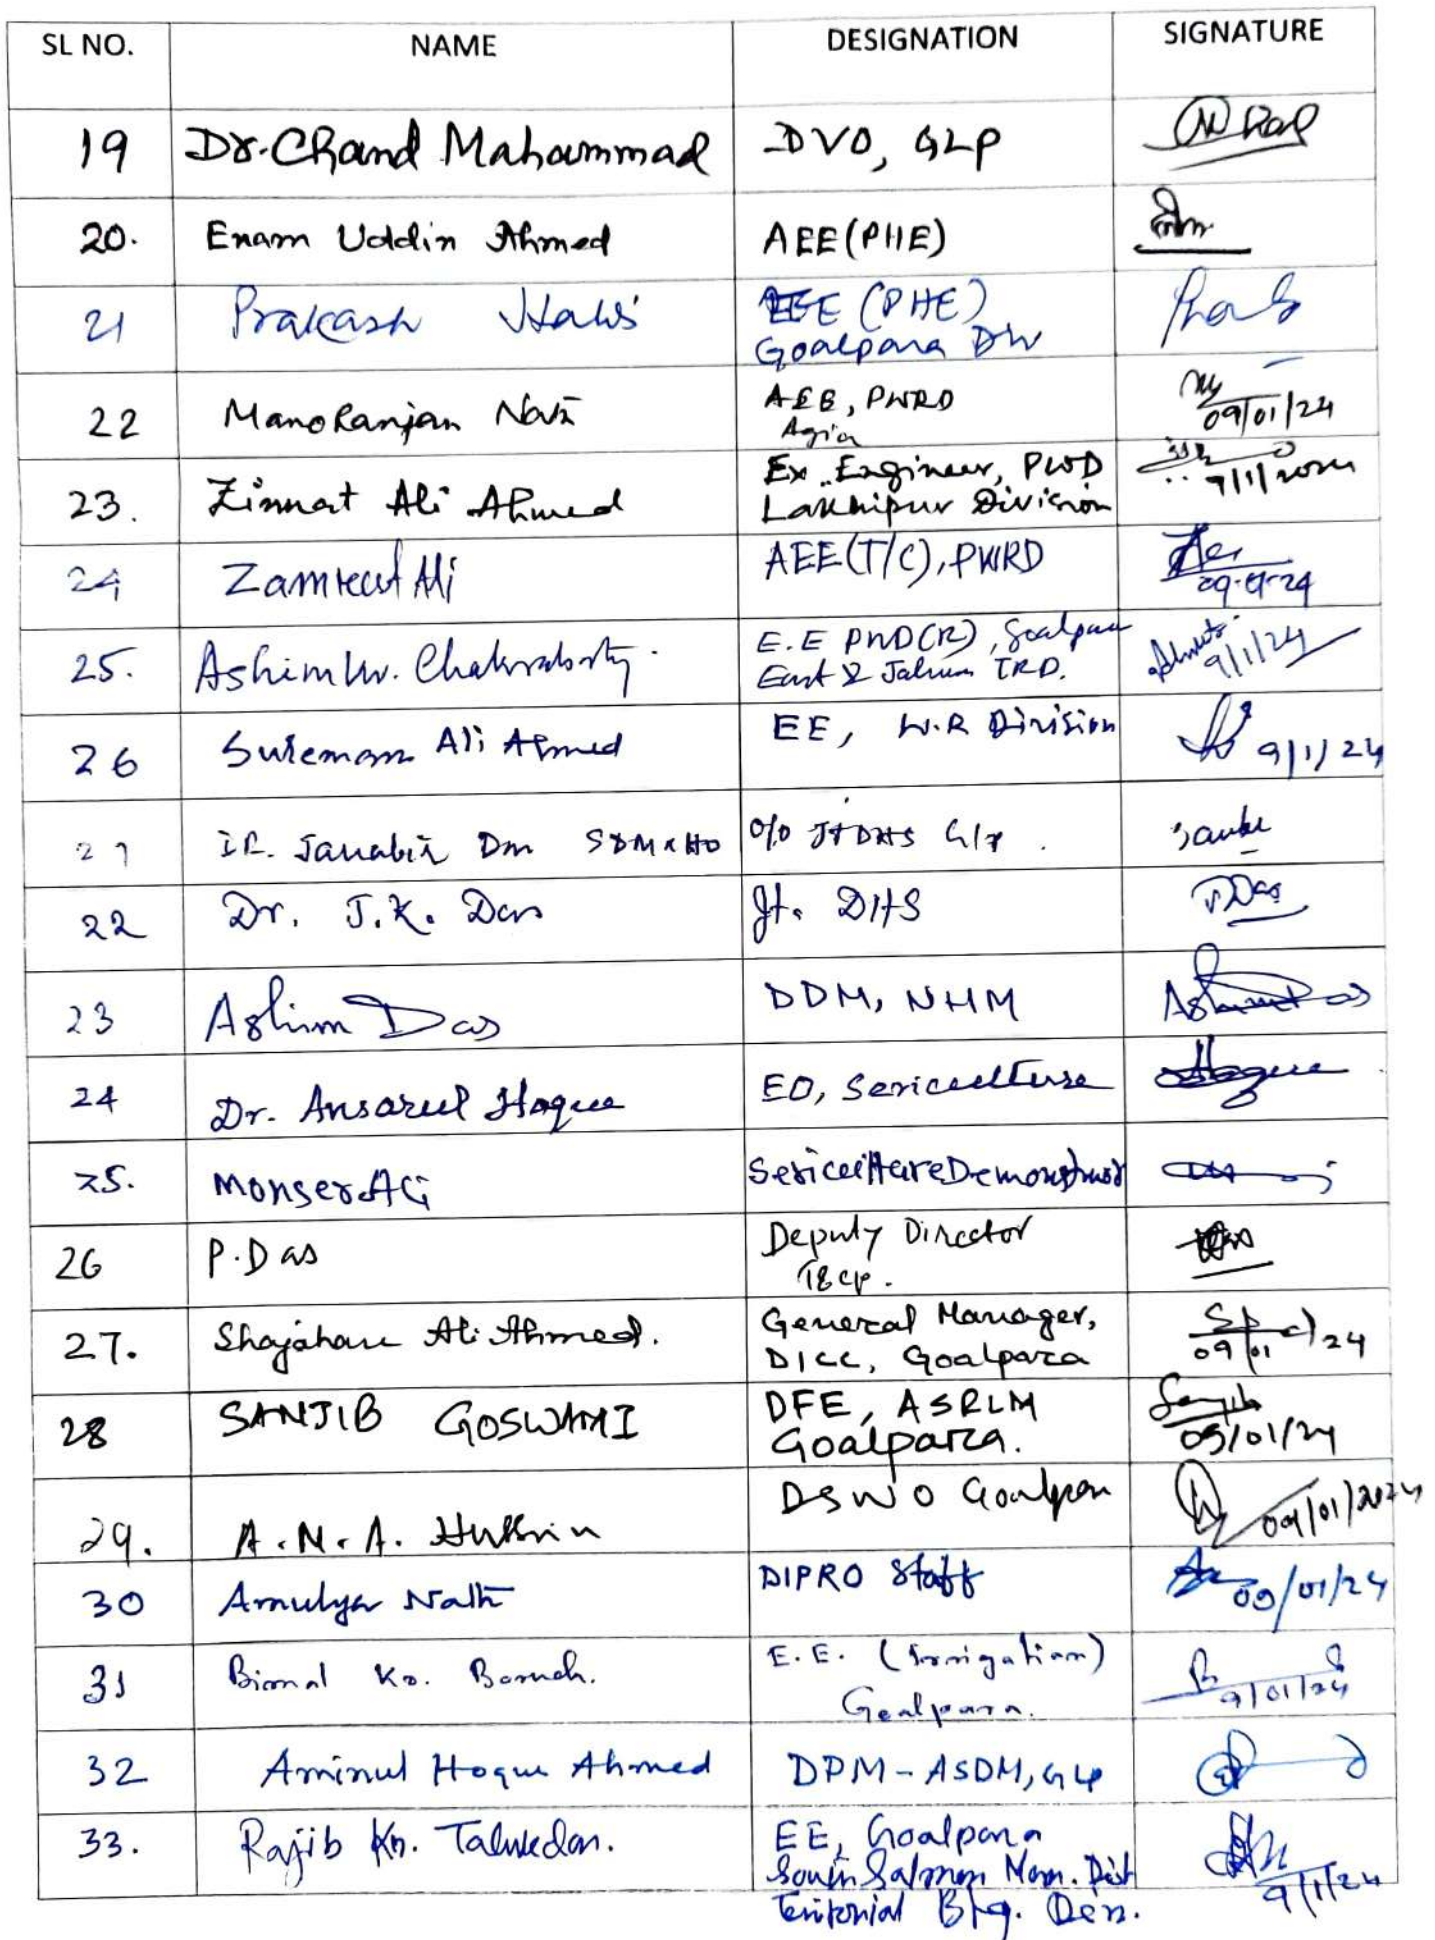 SL NO. NAME DESIGNATION SIGNATURE
19 Dr. Chand Mahammad DVO, GLP
20. Enam Uddin Ahmed AEE (PHE)
21 Prakash EE (PHE)
Goalpara Div
22 Manoranjan Nath AEE, PWRD 09/01/24
Agia
23. Zinnat Ali Ahmed Ex. Engineer, PWD 9/1/2024
Lakhipur Division
24 Zamreat Ali AEE (T/C), PWRD 09-01-24
25. Ashim Kr. Chakraborty. E.E PWD(R), Goalpara 9/1/24
East & TRD.
26 Suleman Ali Ahmed EE, W.R Division 9/1/24
27 SDM&HO O/o Jt DHS Glp.
22 Dr. J.K. Das Jt. DHS JDas
23 Ashim Das DDM, NHM Ashim Das
24 Dr. Ansarul Hoque EO, Sericulture Hoque
25. Monser Ali Sericulture Demonstrator
26 P. Das Deputy Director
T&CP.
27. Shajahan Ali Ahmed. General Manager, 09/01/24
DICC, Goalpara
28 SANJIB GOSWAMI DFE, ASRLM
Goalpara. 09/01/24
29. A.N.A. Hussain DSWO Goalpara 09/01/2024
30 Amulya Nath DIPRO Staff 09/01/24
31 Bimal Kr. Baruah. E.E. (Irrigation) 9/01/24
Goalpara.
32 Aminul Hoque Ahmed DPM-ASDM, GLP
33. Rajib Kr. Talukdar. EE, Goalpara
South Salmara Man. Dist 9/1/24
Territorial Bldg. Divn.